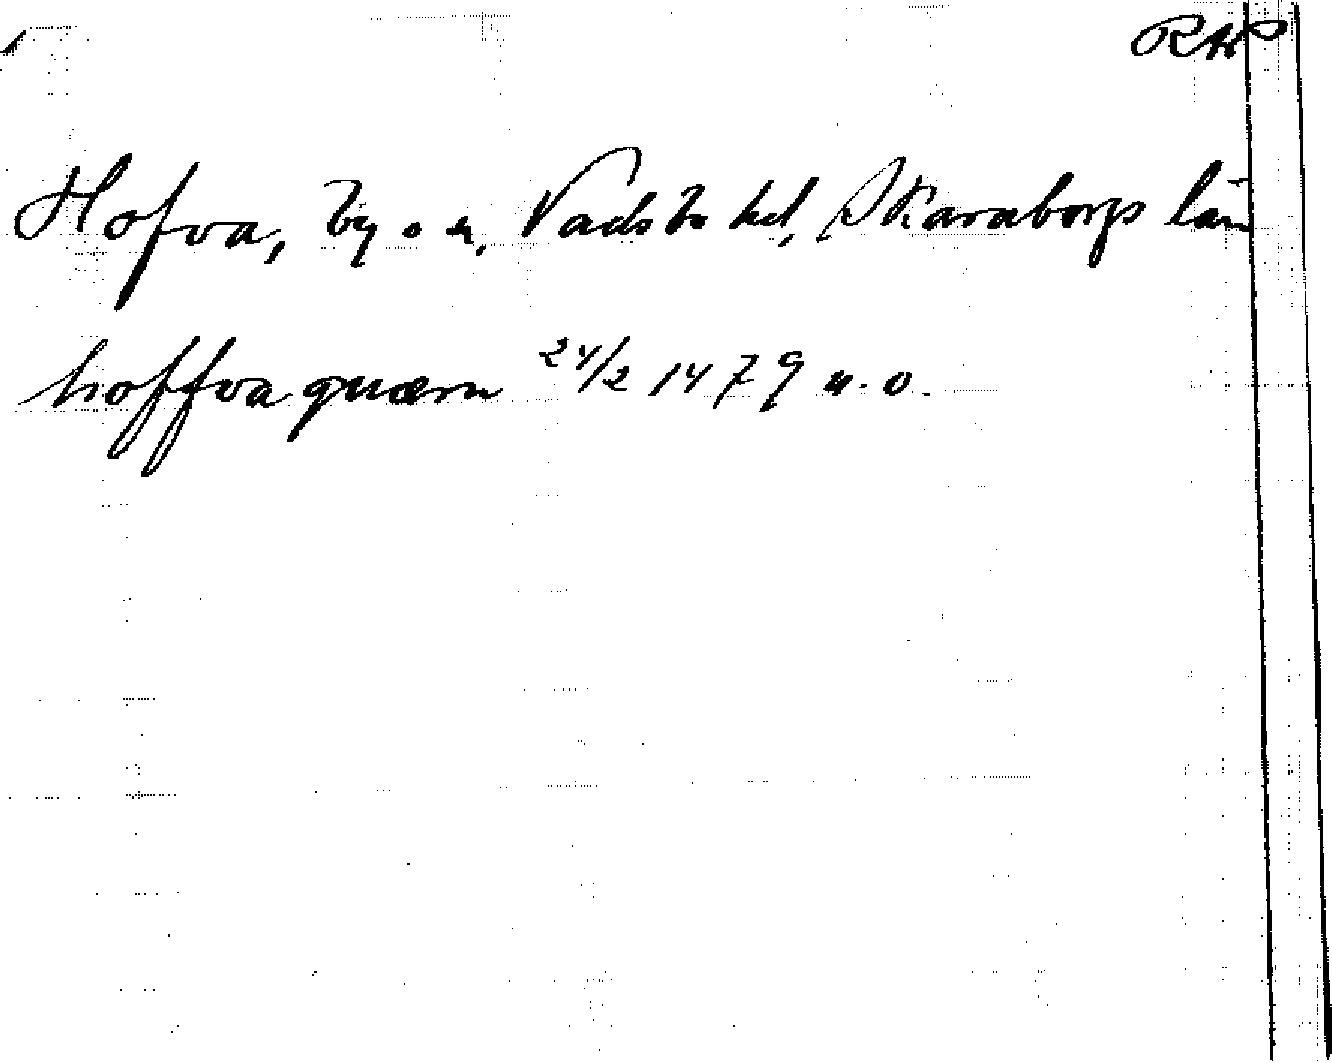 Hofva, by o. sn, Vadsbo hd, Skaraborgs län
hoffva quærn 24/2 1479 n. o.